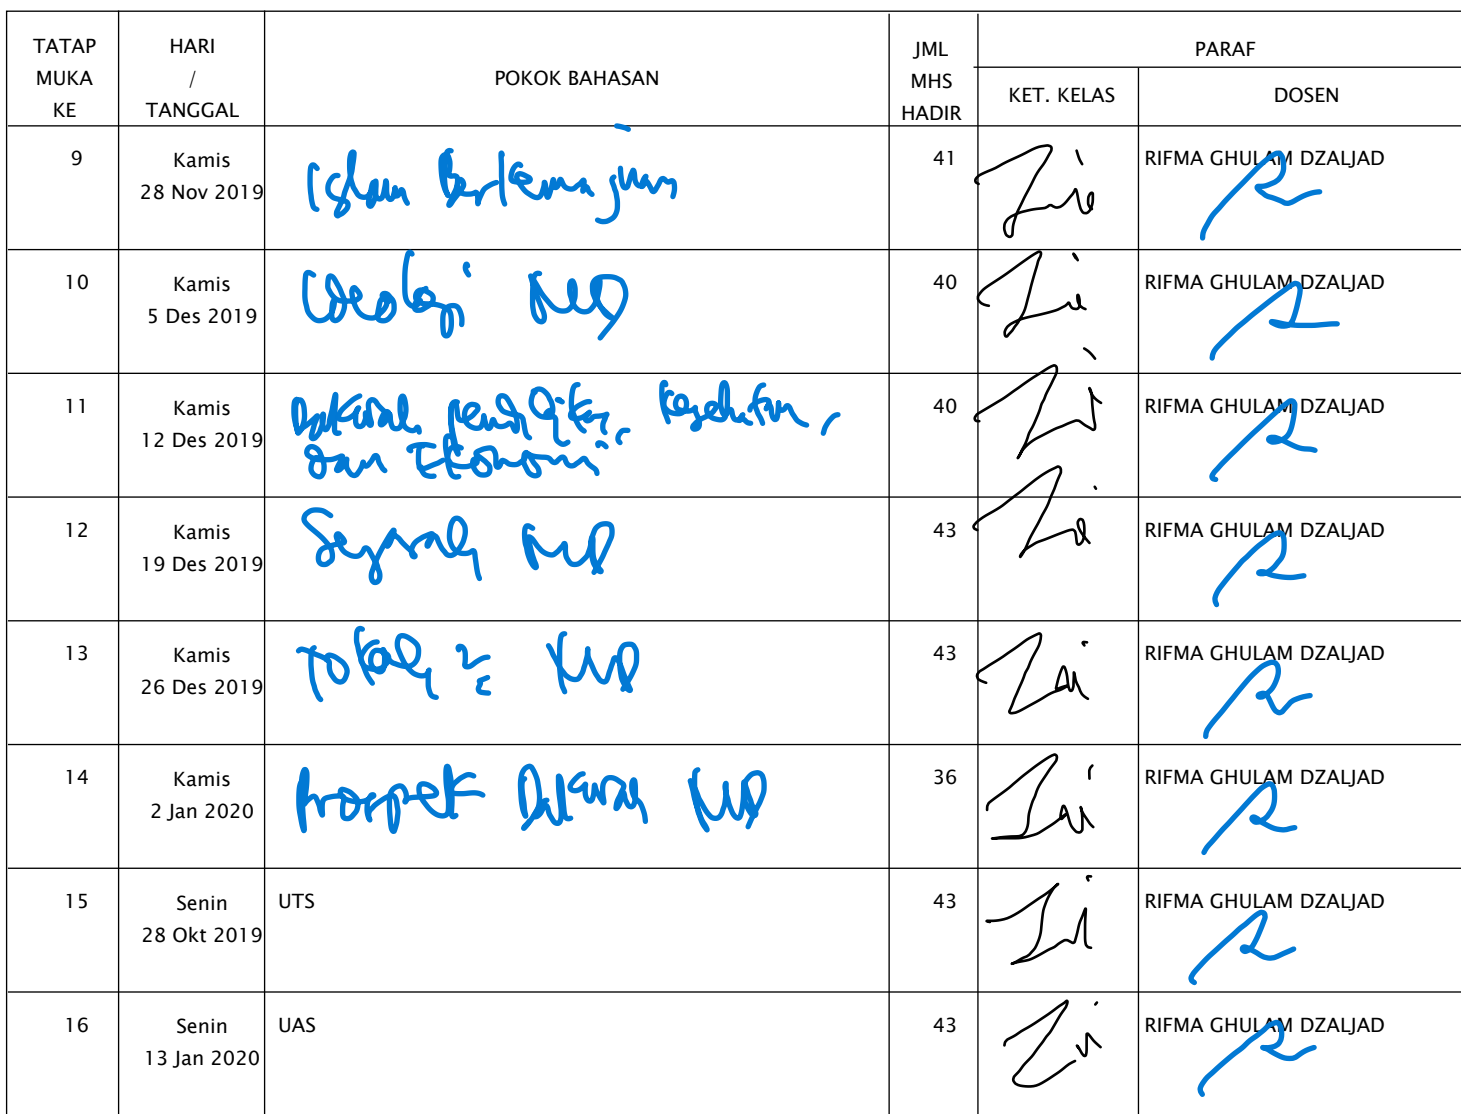 TATAP MUKA KE HARI / TANGGAL POKOK BAHASAN JML MHS HADIR PARAF
KET. KELAS DOSEN
9 Kamis 28 Nov 2019 Islam Berkemajuan 41 RIFMA GHULAM DZALJAD
10 Kamis 5 Des 2019 Ideologi MUD 40 RIFMA GHULAM DZALJAD
11 Kamis 12 Des 2019 Dakwah pendidikan, kesehatan, 40 RIFMA GHULAM DZALJAD
dan Ekonomi
12 Kamis 19 Des 2019 Sejarah MUD 43 RIFMA GHULAM DZALJAD
13 Kamis 26 Des 2019 Tokoh2 MUD 43 RIFMA GHULAM DZALJAD
14 Kamis 2 Jan 2020 Prospek Dakwah MUD 36 RIFMA GHULAM DZALJAD
15 Senin 28 Okt 2019 UTS 43 RIFMA GHULAM DZALJAD
16 Senin 13 Jan 2020 UAS 43 RIFMA GHULAM DZALJAD